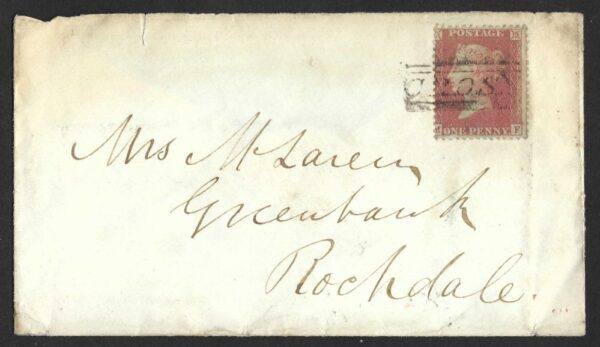 POSTAGE
ONE PENNY
Mrs McLaren
Greenbank
Rochdale.